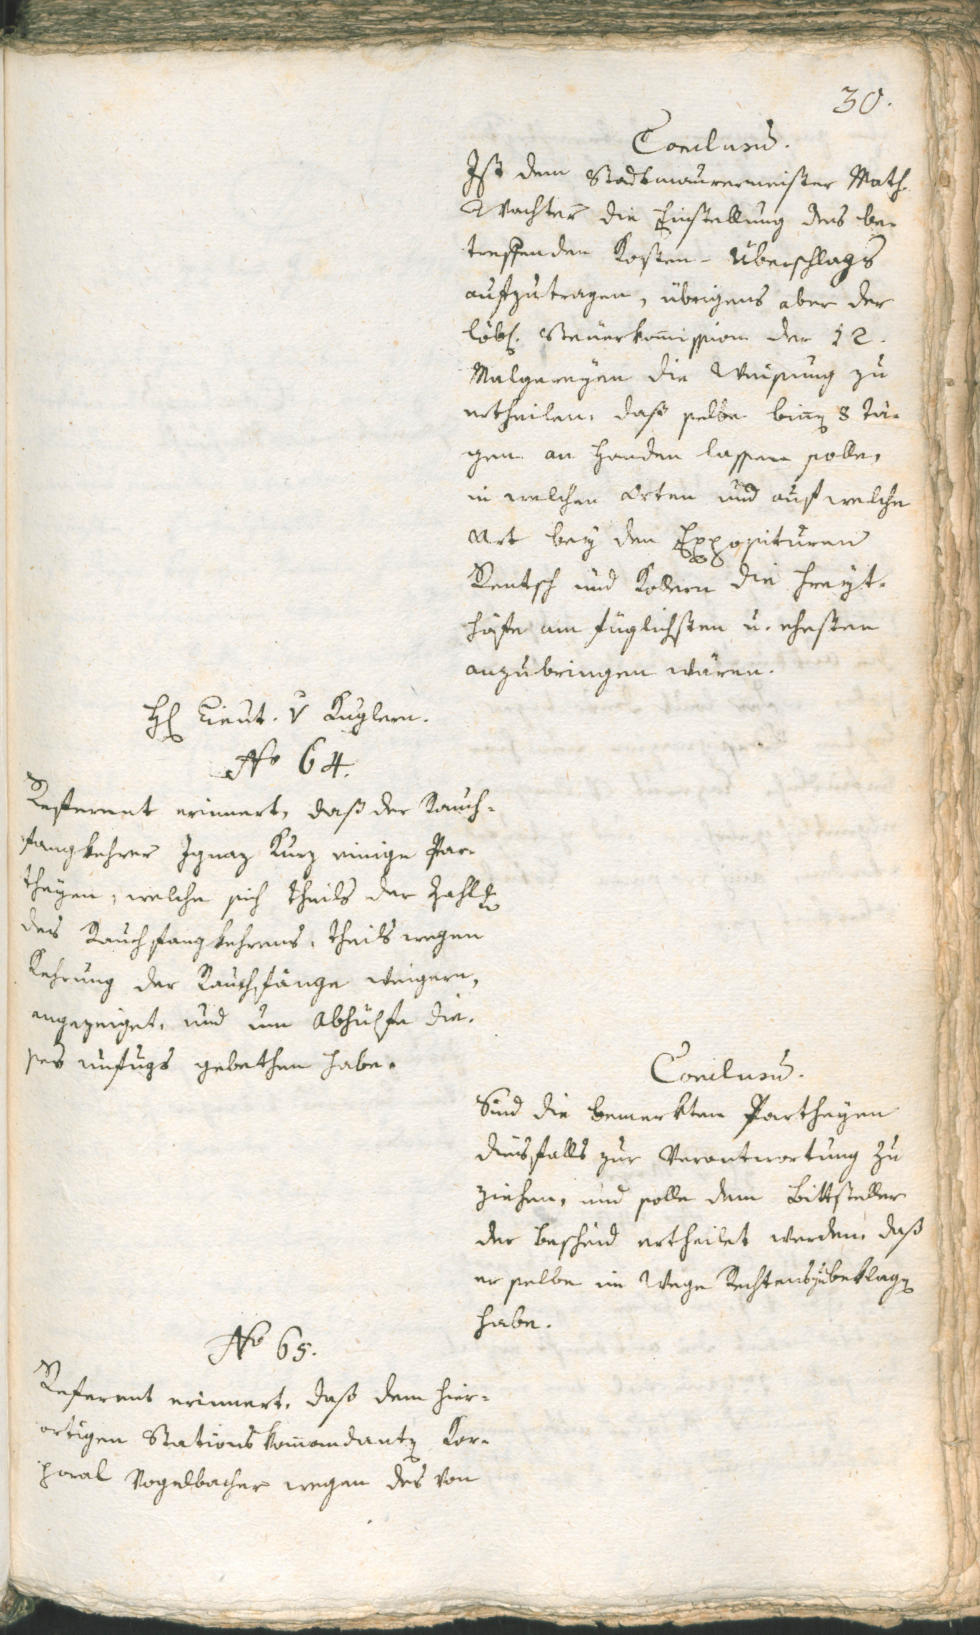 30.
Conclusum.
Ist dem Stadtmaurermeister Math.
Wachter die Einstellung des be-
treffenden Kosten-Überschlags
aufzutragen, übrigens aber der
löbl. Steuerkom̄ission der 12.
Malgereyen die Weisung zu
ertheilen, daß selbe binn 8 Tä-
gen an Handen lassen solle,
in welchen Orten und auf welche
Art bey den Expositurn
Rentsch und Kollern die Freyt-
höfe am füglichsten u. ehesten
anzubringen wären.
H Lieut. v Kuglern.
No 64.
Referent erinnert, daß der Rauch-
fangkehrer Ignaz Kurz einige Par-
theyen, welche sich theils der Zahlg
des Rauchfangkehrens, theils wegen
Kehrung der Rauchfänge weigern,
angezeiget, und um Abhülfe die-
ses Unfugs gebethen habe.
Conclusum.
Sind die bemerkten Partheyen
diesfalls zur Verantwortung zu
ziehen, und solle dem Bittsteller
der Bescheid ertheilet werden, daß
er selbe im Wege Rechtens zu beklagn
habe.
No 65.
Referent erinnert, daß dem hier-
ortigen Stationskom̄andantn Kor-
poral Vogelbacher wegen des von